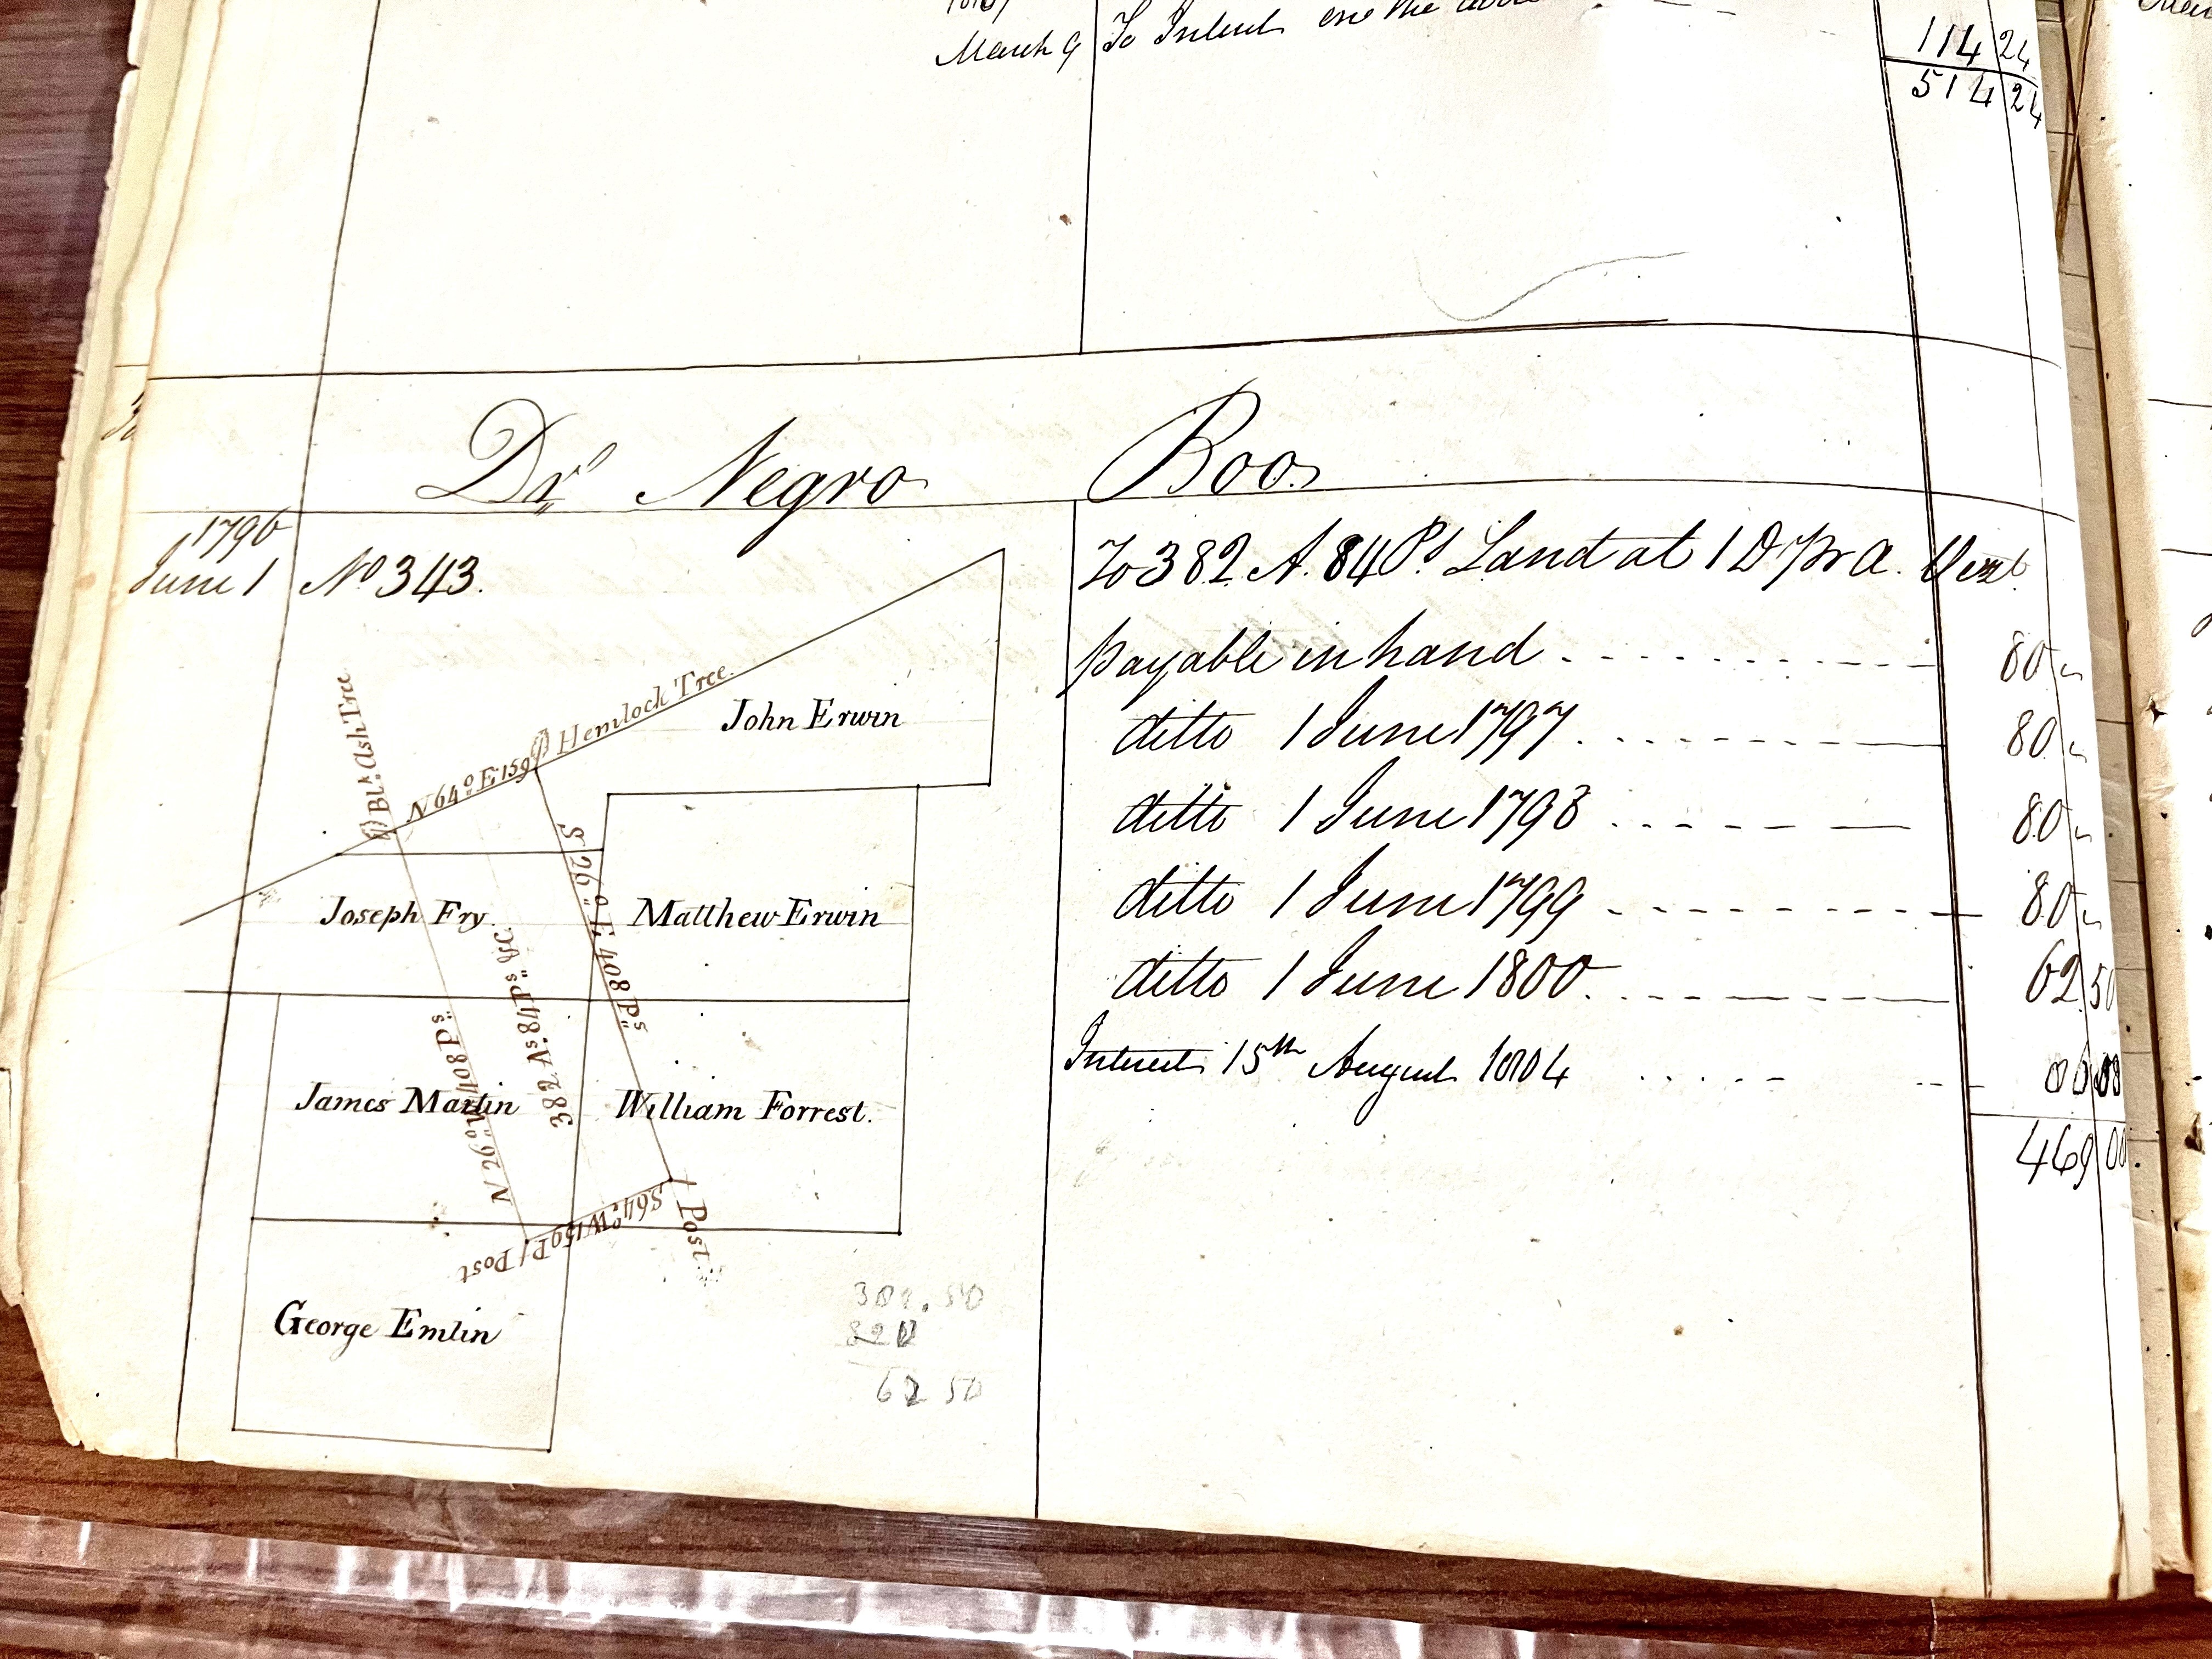 March 9 To Interest on the above
114 24
514 24
Dr. Negro Boo
1796
June 1 No 343. To 382 A. 84 Ps. Land at 1 D pr A.
payable in hand 80
ditto 1 June 1797 80
ditto 1 June 1798 80
ditto 1 June 1799 80
ditto 1 June 1800 62 50
Interest 15th August 1804
469 00
Blk. Ash Tree
N 64° E 159
Hemlock Tree.
John Erwin
S 26° E 408 Ps
Joseph Fry
Matthew Erwin
382 As. 84 Ps &c.
N 26° W 408 Ps
James Martin
William Forrest.
S 64° W 159 P
Post
Post
George Emlin
62 50